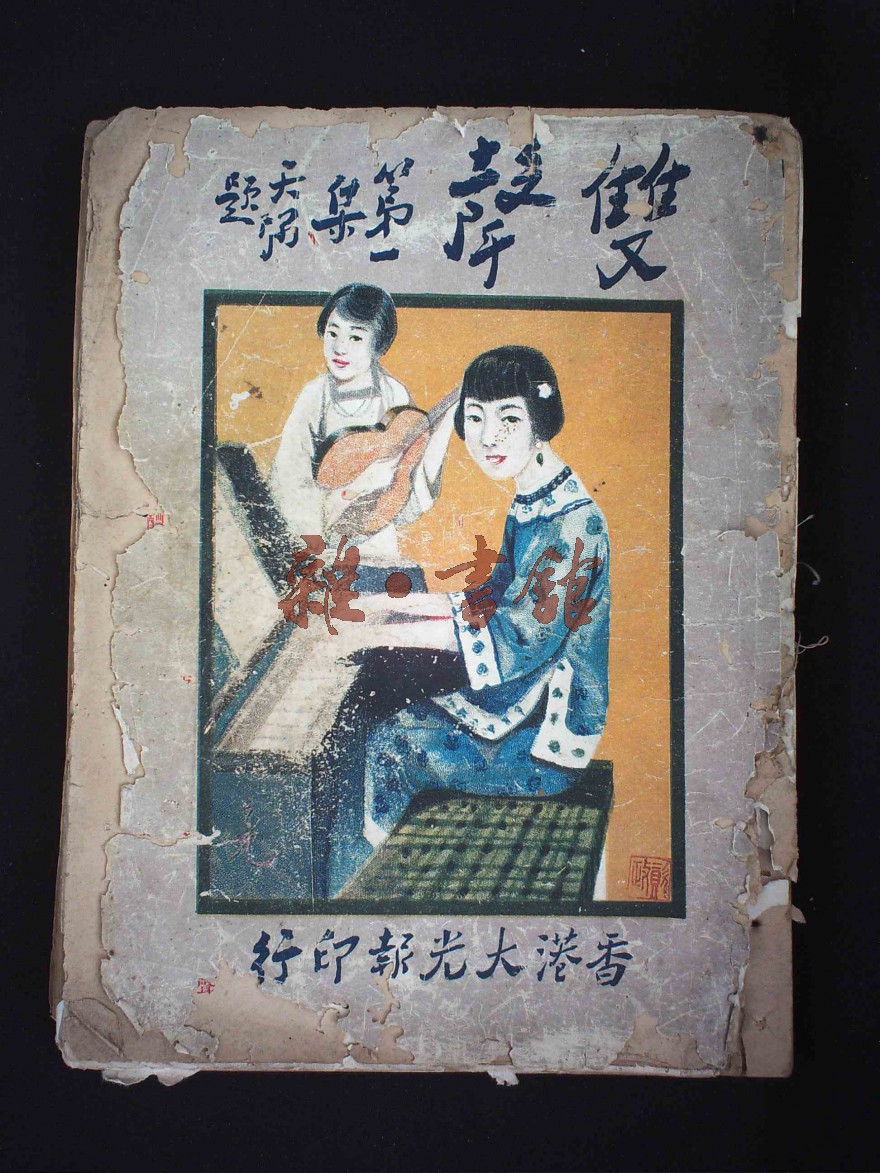 雙聲
第一集
天 題
雜·書館
香港大光報印行